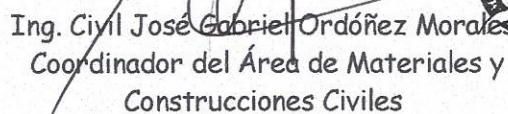 Ing. Civil José Gabriel Ordóñez Morales
Coordinador del Área de Materiales y
Construcciones Civiles